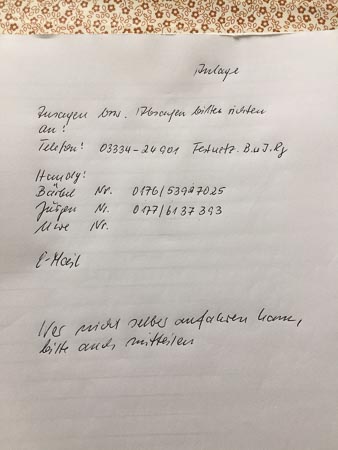 Anlage
Zusagen bzw. Absagen bitte richten
an:
Telefon: 03334-24901 Festnetz. B.u.J.
Handy:
Bärbel Nr. 0176/53927025
Jürgen Nr. 0177/6137393
Uwe Nr.
E-Mail
Wer nicht selber anfahren kann,
bitte auch mitteilen